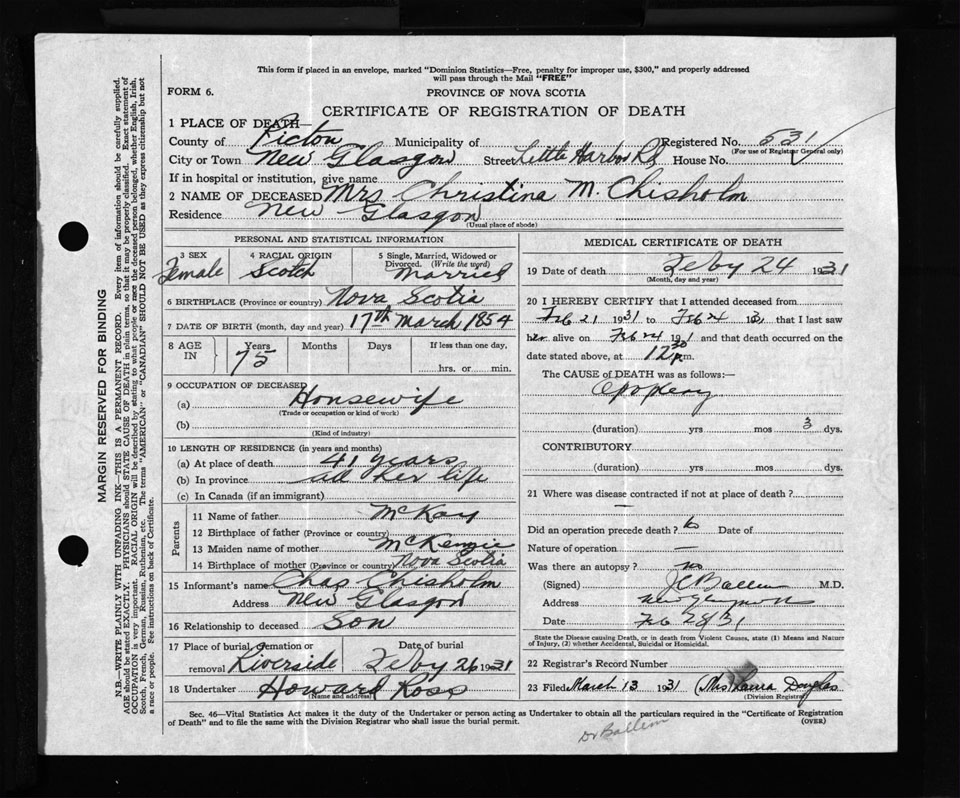 This form if placed in an envelope, marked "Dominion Statistics—Free, penalty for improper use, $300," and properly addressed
will pass through the Mail "FREE"
FORM 6.
PROVINCE OF NOVA SCOTIA
CERTIFICATE OF REGISTRATION OF DEATH
1 PLACE OF DEATH—
County of Pictou Municipality of Registered No. 531
(For use of Registrar General only)
City or Town New Glasgow Street Little Harbor Rd House No.
If in hospital or institution, give name
2 NAME OF DECEASED Mrs Christina M. Chisholm
Residence New Glasgow
(Usual place of abode)
PERSONAL AND STATISTICAL INFORMATION
3 SEX Female
4 RACIAL ORIGIN Scotch
5 Single, Married, Widowed or Divorced. (Write the word) Married
6 BIRTHPLACE (Province or country) Nova Scotia
7 DATE OF BIRTH (month, day and year) 17th March 1854
8 AGE IN Years 75 Months Days If less than one day, hrs. or min.
9 OCCUPATION OF DECEASED
(a) Housewife
(Trade or occupation or kind of work)
(b)
(Kind of industry)
10 LENGTH OF RESIDENCE (in years and months)
(a) At place of death 41 years
(b) In province all her life
(c) In Canada (if an immigrant)
Parents
11 Name of father McKay
12 Birthplace of father (Province or country)
13 Maiden name of mother McKenzie
14 Birthplace of mother (Province or country) Nova Scotia
15 Informant's name Chas Chisholm
Address New Glasgow
16 Relationship to deceased Son
17 Place of burial, cremation or removal Riverside
Date of burial Feby 26 1931
18 Undertaker Howard Ross
(Name and address)
MEDICAL CERTIFICATE OF DEATH
19 Date of death Feby 24 1931
(Month, day and year)
20 I HEREBY CERTIFY that I attended deceased from
Feb 21 1931 to Feb 24 1931 that I last saw
her alive on Feb 24 1931 and that death occurred on the
date stated above, at 12 30 p.m.
The CAUSE of DEATH was as follows:—
Apoplexy
(duration) yrs mos 3 dys.
CONTRIBUTORY
(duration) yrs mos dys.
21 Where was disease contracted if not at place of death?
—
Did an operation precede death? No Date of
Nature of operation —
Was there an autopsy? no
(Signed) JC Ballem M.D.
Address New Glasgow NS
Date Feb 28/31
State the Disease causing Death, or in death from Violent Causes, state (1) Means and Nature
of Injury, (2) whether Accidental, Suicidal or Homicidal.
22 Registrar's Record Number
23 Filed March 13 1931 (Mrs Laura Douglas
(Division Registrar)
Sec. 46—Vital Statistics Act makes it the duty of the Undertaker or person acting as Undertaker to obtain all the particulars required in the "Certificate of Registration
of Death" and to file the same with the Division Registrar who shall issue the burial permit.
(OVER)
Dr Ballem
MARGIN RESERVED FOR BINDING
N.B.—WRITE PLAINLY WITH UNFADING INK—THIS IS A PERMANENT RECORD. Every item of information should be carefully supplied.
AGE should be stated EXACTLY. PHYSICIANS should STATE CAUSE OF DEATH in plain terms, so that it may be properly classified. Exact statement of
OCCUPATION is very important. RACIAL ORIGIN will be described by stating to what people or race the deceased person belonged, whether English, Irish,
Scotch, French, German, Russian, Ruthenian, etc. The terms "AMERICAN" or "CANADIAN" SHOULD NOT BE USED as they express citizenship but not
a race or people. See instructions on back of Certificate.